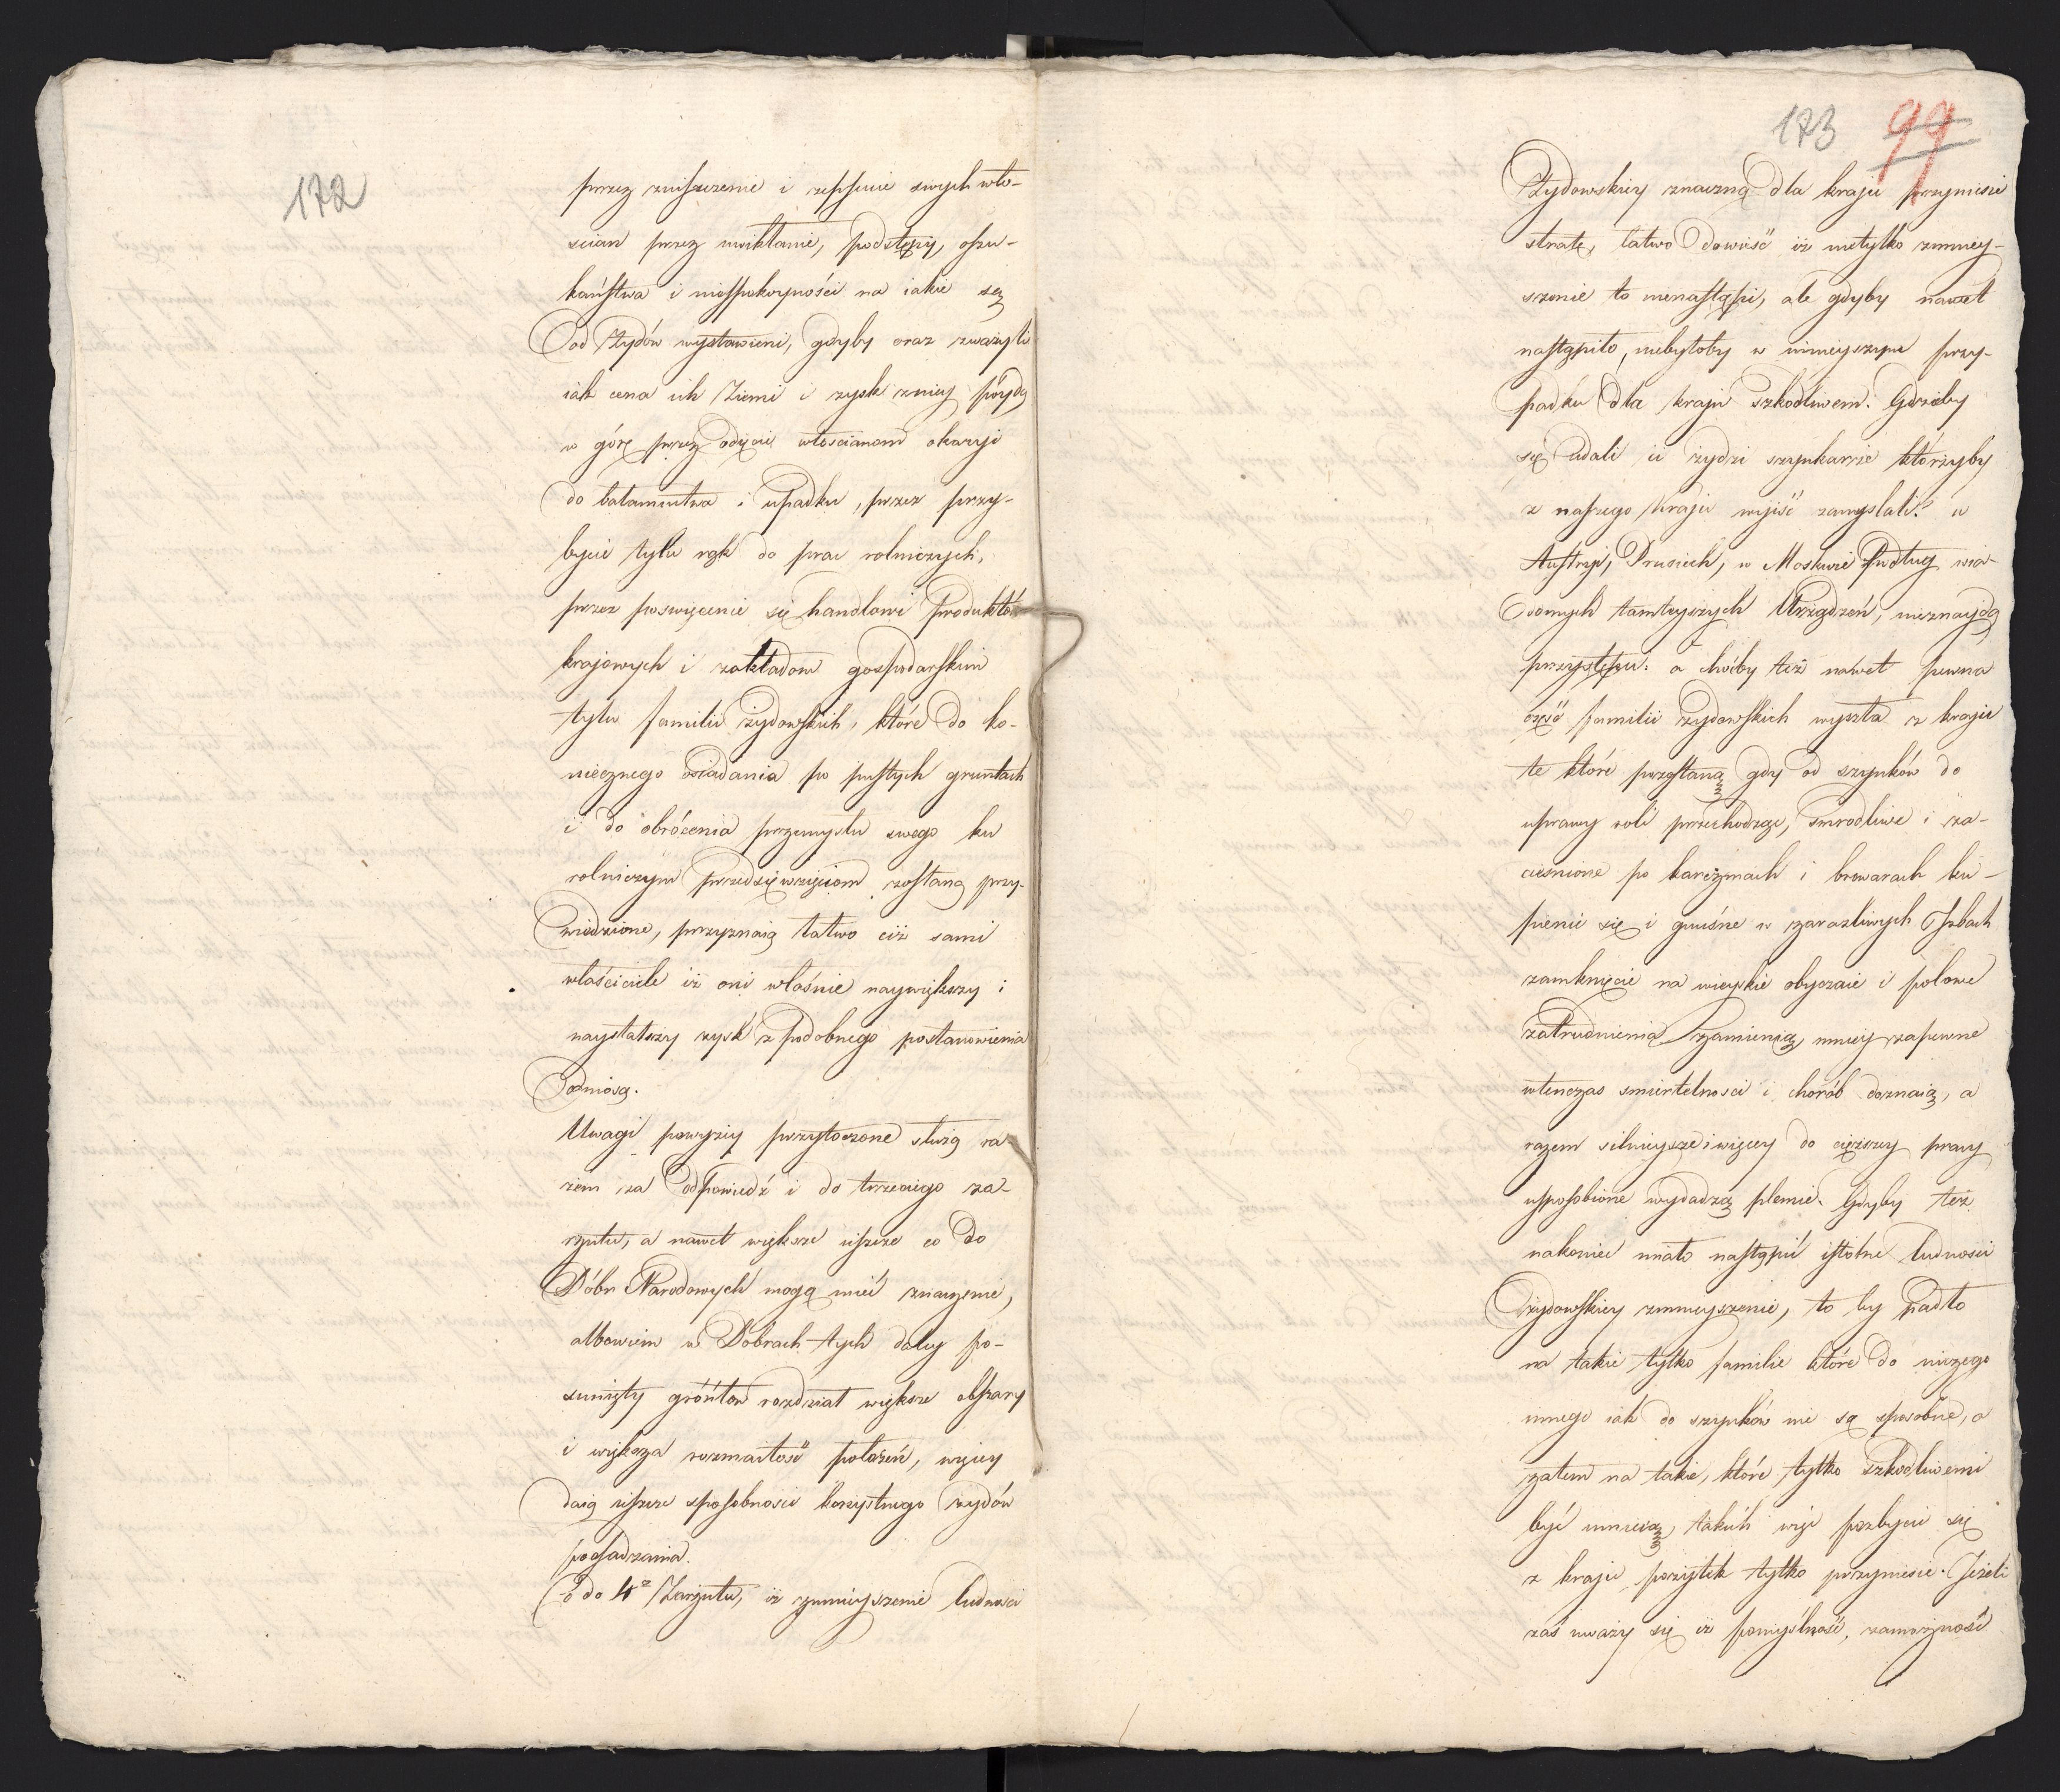 172
przez zniszczenie i zepsucie swych wło-
ścian przez uwikłanie, podstępy, oszu-
kaństwa i niespokoyności na iakie są
od Żydów wystawieni, gdyby oraz zważyli
iak cena ich Ziemi i zysk zniey póydą
w górę przez odjęcie włościanom okazyi
do bałamutwa i upadku, przez przy-
bycie tylu rąk do prac rolniczych,
przez poswięcenie się handlowi Produktów
krajowych i zakładom gospodarskim
tylu familii żydowskich, które do ko-
niecznego osiadania po pustych gruntach
i do obrócenia przemysłu swego ku
rolniczym przedsięwzięciom zostaną przy-
wiedzione, przyznaią łatwo ciż sami
właściciele iż oni właśnie naywiększy i
naystalszy zysk z podobnego postanowienia
odniosą.
Uwagi powyżey przytoczone służą ra-
zem za odpowiedź i do trzeciego za-
rzutu, a nawet większe ieszcze co do
Dóbr Narodowych mogą mieć znaczenie,
albowiem w Dobrach tych daley po-
sunięty gróntow rozdział większe obszary
i większa rozmaitość położeń, więcey
daią ieszcze sposobnosci korzystnego żydów
posadzania.
Co do 4º Zarzutu, iż zmnieyszenie ludnosci
173 99
Żydowskiey znaczną dla kraju przyniesie
stratę, łatwo dowieść iż nietylko zmniey-
szenie to nienastąpi, ale gdyby nawet
nastąpiło, niebyłoby w ninieyszym przy-
padku dla kraju szkodliwem. Gdzieby
się udali ci żydzi szynkarze którzyby
z naszego kraju wyiść zamyslali? w
Austryi, Prusiech, w Moskwie podług wia-
domych tamteyszych Urządzeń, nieznaydą
przystępu. a choćby też nawet pewna
część familii żydowskich wyszła z kraju
te które pozostaną gdy od szynków do
uprawy roli przechodząc, smrodliwe i za-
cieśnione po karczmach i browarach ku-
pienie się i gnuśne w zaraźliwych Izbach
zamknięcie na wieyskie obyczaie i polowe
zatrudnienia zamienią, mniey zapewne
wtenczas smiertelnosci i chorób doznaią, a
razem silnieysze i więcey do cięższey pracy
usposobione wydadzą plemie. Gdyby też
nakoniec miało nastąpić istotne ludnosci
żydowskiey zmnieyszenie, to by padło
na takie tylko familie które do niczego
innego iak do szynków nie są sposobne, a
zatem na takie, które tylko szkodliwemi
być umieią, takich więc pozbycie się
z kraju pożytek tylko przyniesie. Jeżeli
zaś uważy się iż pomyślność, zamożność